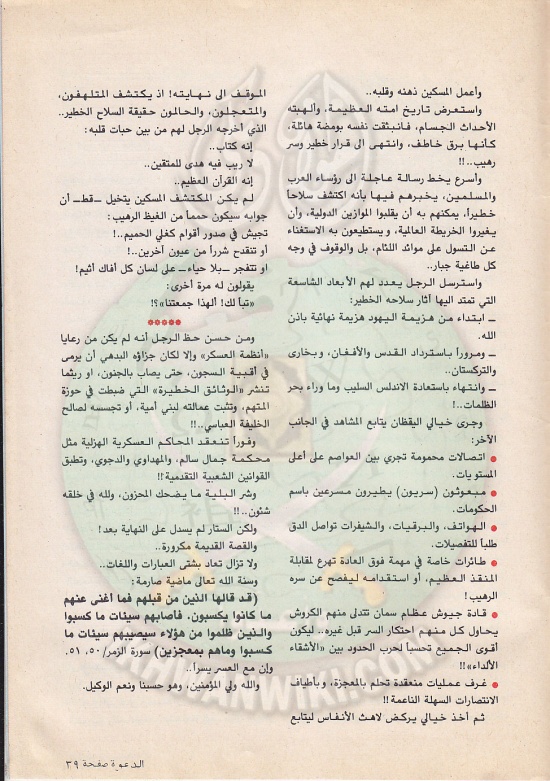 وأعمل المسكين ذهنه وقلبه..
واستعرض تاريخ امته العظيمة، وألهبته
الأحداث الجسام، فانبثقت نفسه بومضة هائلة،
كأنها برق خاطف، وانتهى الى قرار خطير وسر
رهيب..!!
وأسرع يخط رسالة عاجلة الى رؤساء العرب
والمسلمين، يخبرهم فيها بأنه اكتشف سلاحاً
خطيراً، يمكنهم به أن يقلبوا الموازين الدولية، وأن
يغيروا الخريطة العالمية، ويستطيعون به الاستغناء
عن التسول على موائد اللئام، بل والوقوف في وجه
كل طاغية جبار..
واسترسل الرجل يعدد لهم الأبعاد الشاسعة
التي تمتد اليها آثار سلاحه الخطير:
ــ ابتداء من هزيمة اليهود هزيمة نهائية باذن
الله.
ــ ومروراً باسترداد القدس والأفغان، وبخارى
والتركستان..
ــ وانتهاء باستعادة الاندلس السليب وما وراء بحر
الظلمات..!
وجرى خيالي اليقظان يتابع المشاهد في الجانب
الآخر:
● اتصالات محمومة تجري بين العواصم على أعلى
المستويات.
● مبعوثون (سريون) يطيرون مسرعين باسم
الحكومات.
● الهواتف، والبرقيات، والشيفرات تواصل الدق
طلباً للتفصيلات.
● طائرات خاصة في مهمة فوق العادة تهرع لمقابلة
المنقذ العظيم، أو استقدامه ليفصح عن سره
الرهيب!
● قادة جيوش عظام سمان تتدلى منهم الكروش
يحاول كل منهم احتكار السر قبل غيره.. ليكون
أقوى الجميع تحسباً لحرب الحدود بين «الأشقاء
الألداء»!!
● غرف عمليات منعقدة تحلم بالمعجزة، وبأطياف
الانتصارات السهلة الناعمة!!
ثم أخذ خيالي يركض لاهث الأنفاس ليتابع
الموقف الى نهايته! اذ يكتشف المتلهفون،
والمتعجلون، والحالمون حقيقة السلاح الخطير..
الذي أخرجه الرجل لهم من بين حبات قلبه:
إنه كتاب..
لا ريب فيه هدى للمتقين..
إنه القرآن العظيم..
لم يكن المكتشف المسكين يتخيل ــ قط ــ أن
جوابه سيكون حمماً من الغيظ الرهيب:
تجيش في صدور أقوام كغلي الحميم..!
أو تنقدح شرراً من عيون آخرين..!
أو تتفجر ــ بلا حياء ــ على لسان كل أفاك أثيم!
يقولون له مرة أخرى:
«تباً لك! ألهذا جمعتنا»؟!
*****
ومن حسن حظ الرجل أنه لم يكن من رعايا
«أنظمة العسكر» وإلا لكان جزاؤه البدهي أن يرمى
في أقبية السجون، حتى يصاب بالجنون، او ريثما
تنشر «الوثائق الخطيرة» التي ضبطت في حوزة
المتهم، وتثبت عمالته لبني أمية، أو تجسسه لصالح
الخليفة العباسي..!!
وفوراً تنعقد المحاكم العسكرية الهزلية مثل
محكمة جمال سالم، والمهداوي والدجوي، وتطبق
القوانين الشعبية التقدمية!!
وشر البلية ما يضحك المحزون، ولله في خلقه
شئون..!!
ولكن الستار لم يسدل على النهاية بعد!
والقصة القديمة مكرورة..
ولا تزال تعاد بشتى العبارات واللغات..
وسنة الله تعالى ماضية صارمة:
(قد قالها الذين من قبلهم فما أغنى عنهم
ما كانوا يكسبون. فأصابهم سيئات ما كسبوا
والذين ظلموا من هؤلاء سيصيبهم سيئات ما
كسبوا وماهم بمعجزين) سورة الزمر/٥٠، ٥١.
وإن مع العسر يسراً..
والله ولي المؤمنين، وهو حسبنا ونعم الوكيل.
الدعوة صفحة ٣٩